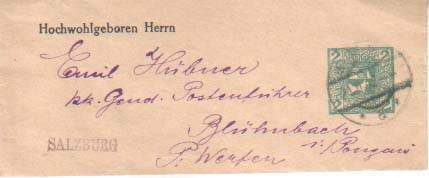 Hochwohlgeboren Herrn
Emil Hübner
k.k. Gend. Postenführer
Blühnbach
i/Pongau
P. Werfen
SALZBURG
2
2